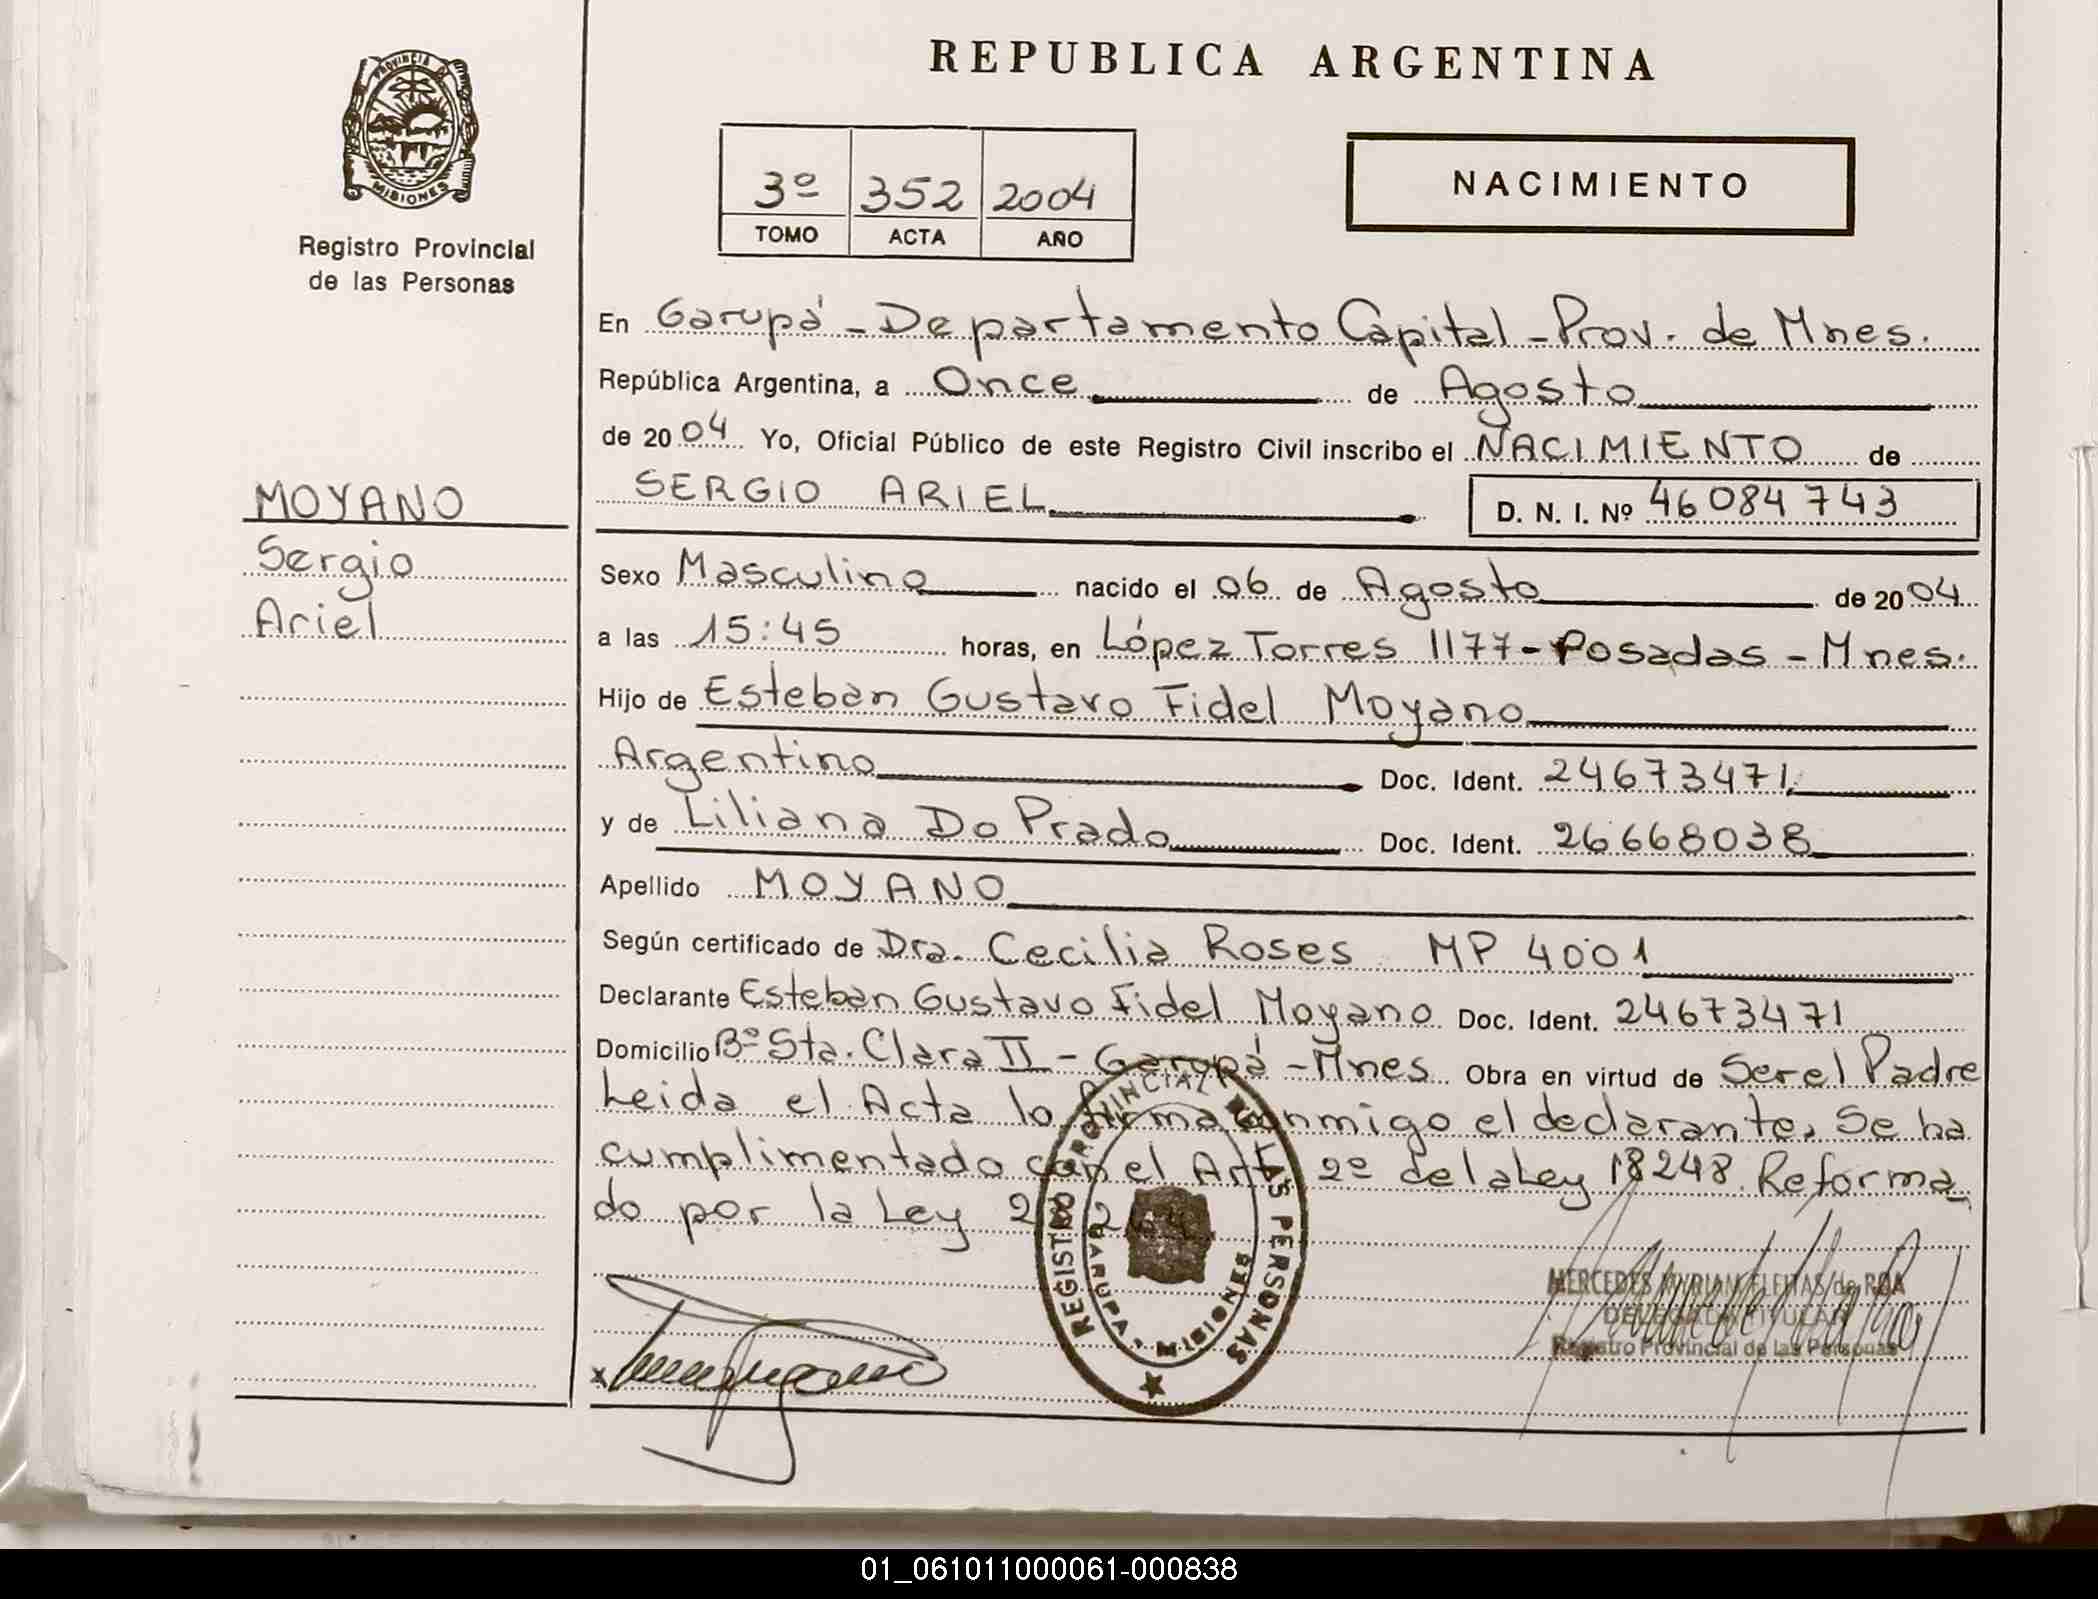 REPUBLICA ARGENTINA
PROVINCIA DE
MISIONES
Registro Provincial
de las Personas
3º 352 2004
TOMO ACTA AÑO
NACIMIENTO
En Garupá - Departamento Capital - Prov. de Mnes.
República Argentina, a Once de Agosto
de 2004 Yo, Oficial Público de este Registro Civil inscribo el NACIMIENTO de
SERGIO ARIEL D. N. I. Nº 46084743
MOYANO
Sergio
Ariel
Sexo Masculino nacido el 06 de Agosto de 2004
a las 15:45 horas, en López Torres 1177 - Posadas - Mnes.
Hijo de Esteban Gustavo Fidel Moyano
Argentino Doc. Ident. 24673471
y de Liliana Do Prado Doc. Ident. 26668038
Apellido MOYANO
Según certificado de Dra. Cecilia Roses MP 4001
Declarante Esteban Gustavo Fidel Moyano Doc. Ident. 24673471
Domicilio Bº Sta. Clara II - Garupá - Mnes Obra en virtud de Ser el Padre
Leida el Acta lo firma conmigo el declarante, Se ha
cumplimentado con el Art. 2º de la Ley 18248 Reforma
do por la Ley
REGISTRO PROVINCIAL DE LAS PERSONAS
GARUPA - MISIONES
MERCEDES MYRIAN FLEITAS de ROA
DELEGADA TITULAR
Registro Provincial de las Personas
01_061011000061-000838